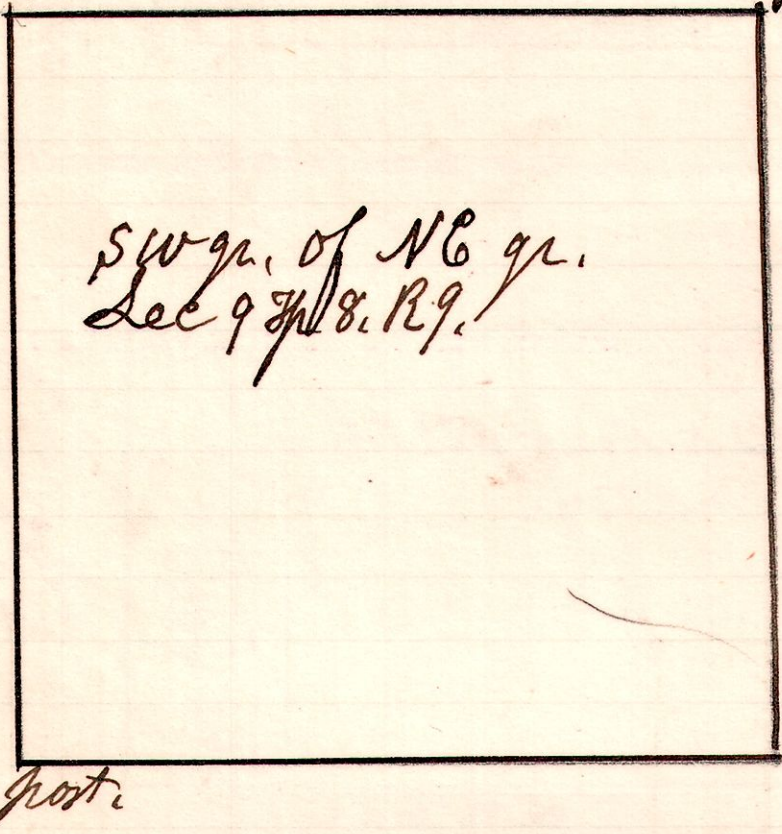 SW qr. of NE qr.
Sec 9 Tp 8. R 9.
post.